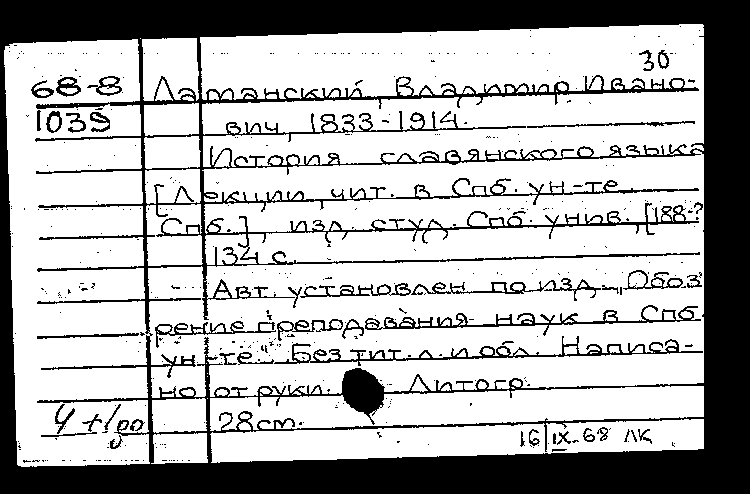 30
68-8 Ламанский, Владимир Ивано-
1039 вич, 1833-1914.
История славянского языка
[Лекции, чит. в Спб. ун-те
Спб.], изд. студ. Спб. унив., [188-?
134 с.
Авт. установлен по изд. „Обоз
рение преподавания наук в Спб.
ун-те“. Без тит. л. и обл. Написа-
но от руки. Литогр.
28 см.
16 IX-68 ЛК